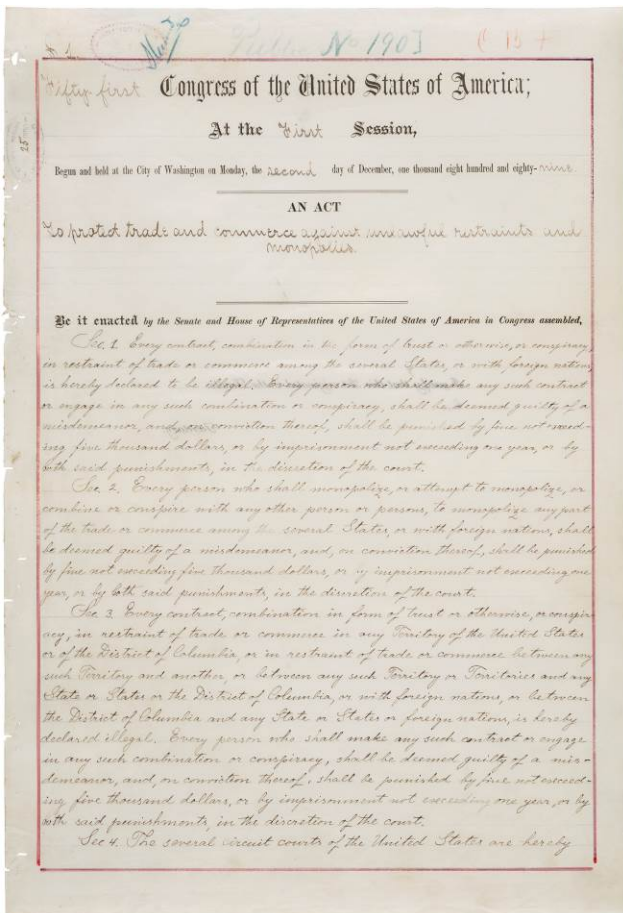 No 1903
Fifty-first Congress of the United States of America;
At the First Session,
Begun and held at the City of Washington on Monday, the second day of December, one thousand eight hundred and eighty-nine.
AN ACT
To protect trade and commerce against unlawful restraints and
monopolies.
Be it enacted by the Senate and House of Representatives of the United States of America in Congress assembled,
Sec. 1. Every contract, combination in the form of trust or otherwise, or conspiracy,
in restraint of trade or commerce among the several States, or with foreign nations,
is hereby declared to be illegal. Every person who shall make any such contract
or engage in any such combination or conspiracy, shall be deemed guilty of a
misdemeanor, and, on conviction thereof, shall be punished by fine not exceed-
ing five thousand dollars, or by imprisonment not exceeding one year, or by
both said punishments, in the discretion of the court.
Sec. 2. Every person who shall monopolize, or attempt to monopolize, or
combine or conspire with any other person or persons, to monopolize any part
of the trade or commerce among the several States, or with foreign nations, shall
be deemed guilty of a misdemeanor, and, on conviction thereof, shall be punished
by fine not exceeding five thousand dollars, or by imprisonment not exceeding one
year, or by both said punishments, in the discretion of the court.
Sec. 3. Every contract, combination in form of trust or otherwise, or conspir-
acy, in restraint of trade or commerce in any Territory of the United States
or of the District of Columbia, or in restraint of trade or commerce between any
such Territory and another, or between any such Territory or Territories and any
State or States or the District of Columbia, or with foreign nations, or between
the District of Columbia and any State or States or foreign nations, is hereby
declared illegal. Every person who shall make any such contract or engage
in any such combination or conspiracy, shall be deemed guilty of a mis-
demeanor, and, on conviction thereof, shall be punished by fine not exceed-
ing five thousand dollars, or by imprisonment not exceeding one year, or by
both said punishments, in the discretion of the court.
Sec 4. The several circuit courts of the United States are hereby